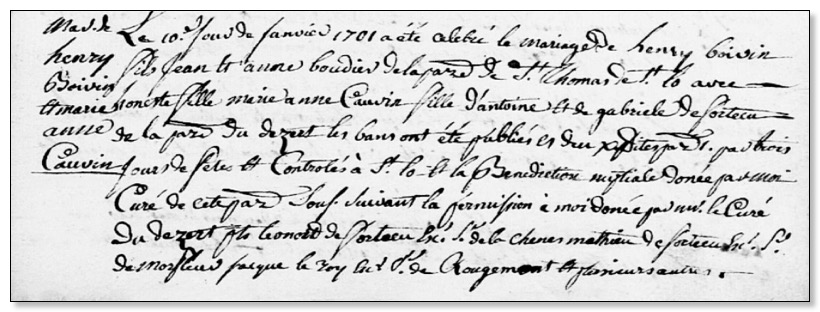 Mar. de henry Boivin et marie anne Cauvin
Le 10e Jour de Janvier 1701 a été celebré le mariage de henry boivin
fils Jean et anne boudier de la par. de St. Thomas de St. lo avec
honeste fille marie anne Cauvin fille d'antoine et de gabriele de sortecu
de la par. du dezert les bans ont été publiés es deux par. par trois
Jours de fetes et Controlés à St. lo et la Benediction nuptiale donée par moi
Curé de cete par. Sous. suivant la permission à moi donée par mr. le Curé
du dezert leonord de sortecu Ec. Sr. de la chenes mathieu de sortecu Ec. Sr.
de jacque le roy Ec. Sr. de Rougemont et plusieurs autres